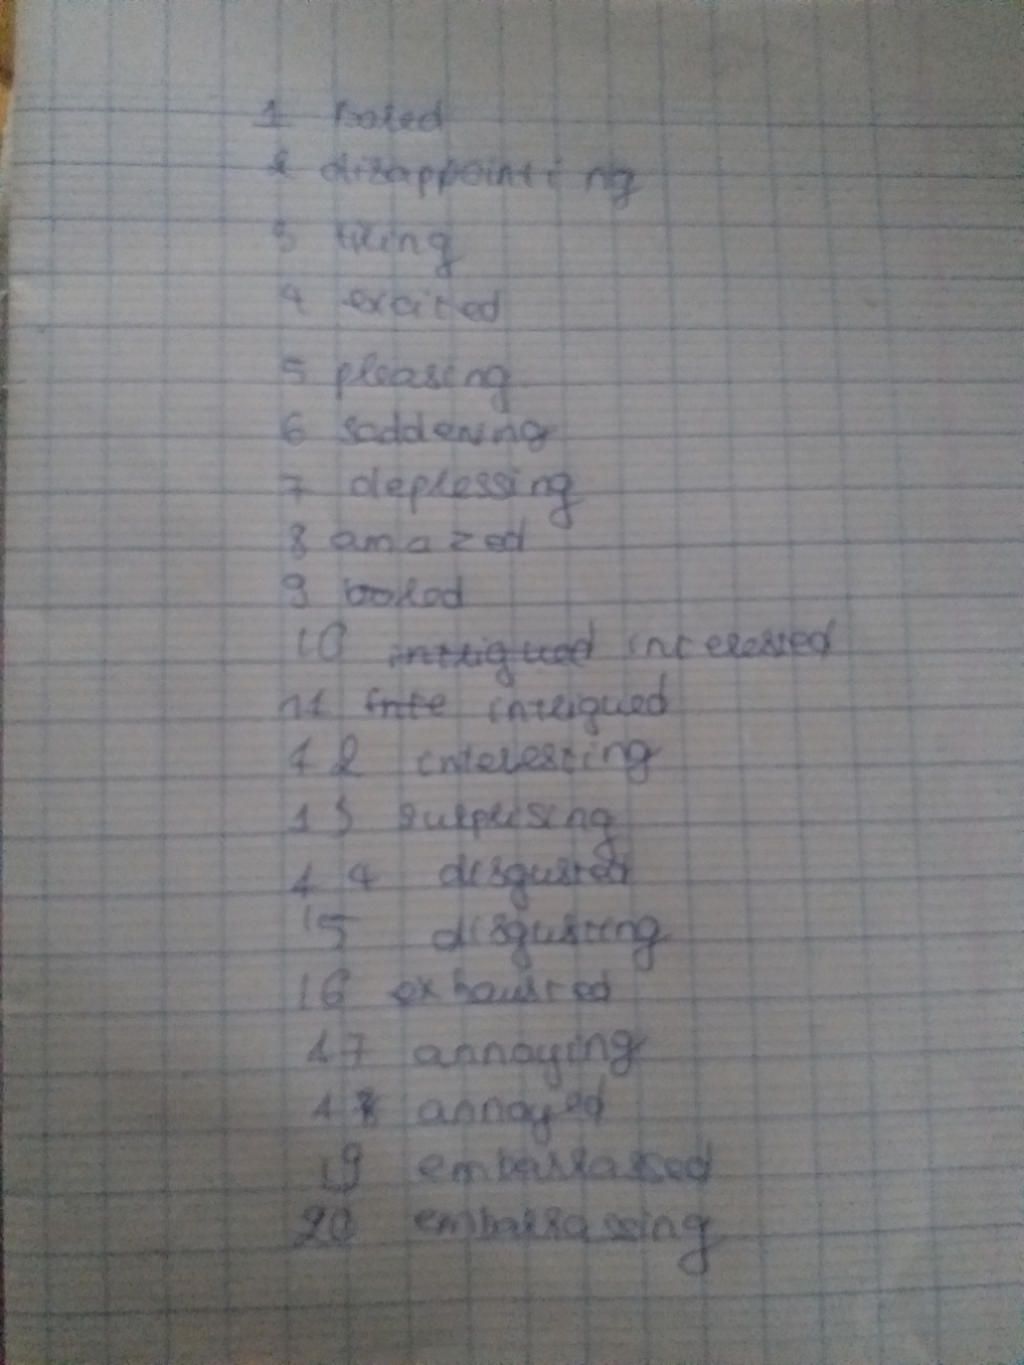 1 bored
2 disappointing
3 tiring
4 excited
5 pleasing
6 saddening
7 depressing
8 amazed
9 bored
10 intrigued interested
11 inte intrigued
12 interesting
13 surprising
14 disgusted
15 disgusting
16 exhausted
17 annoying
18 annoyed
19 embarrassed
20 embarrassing